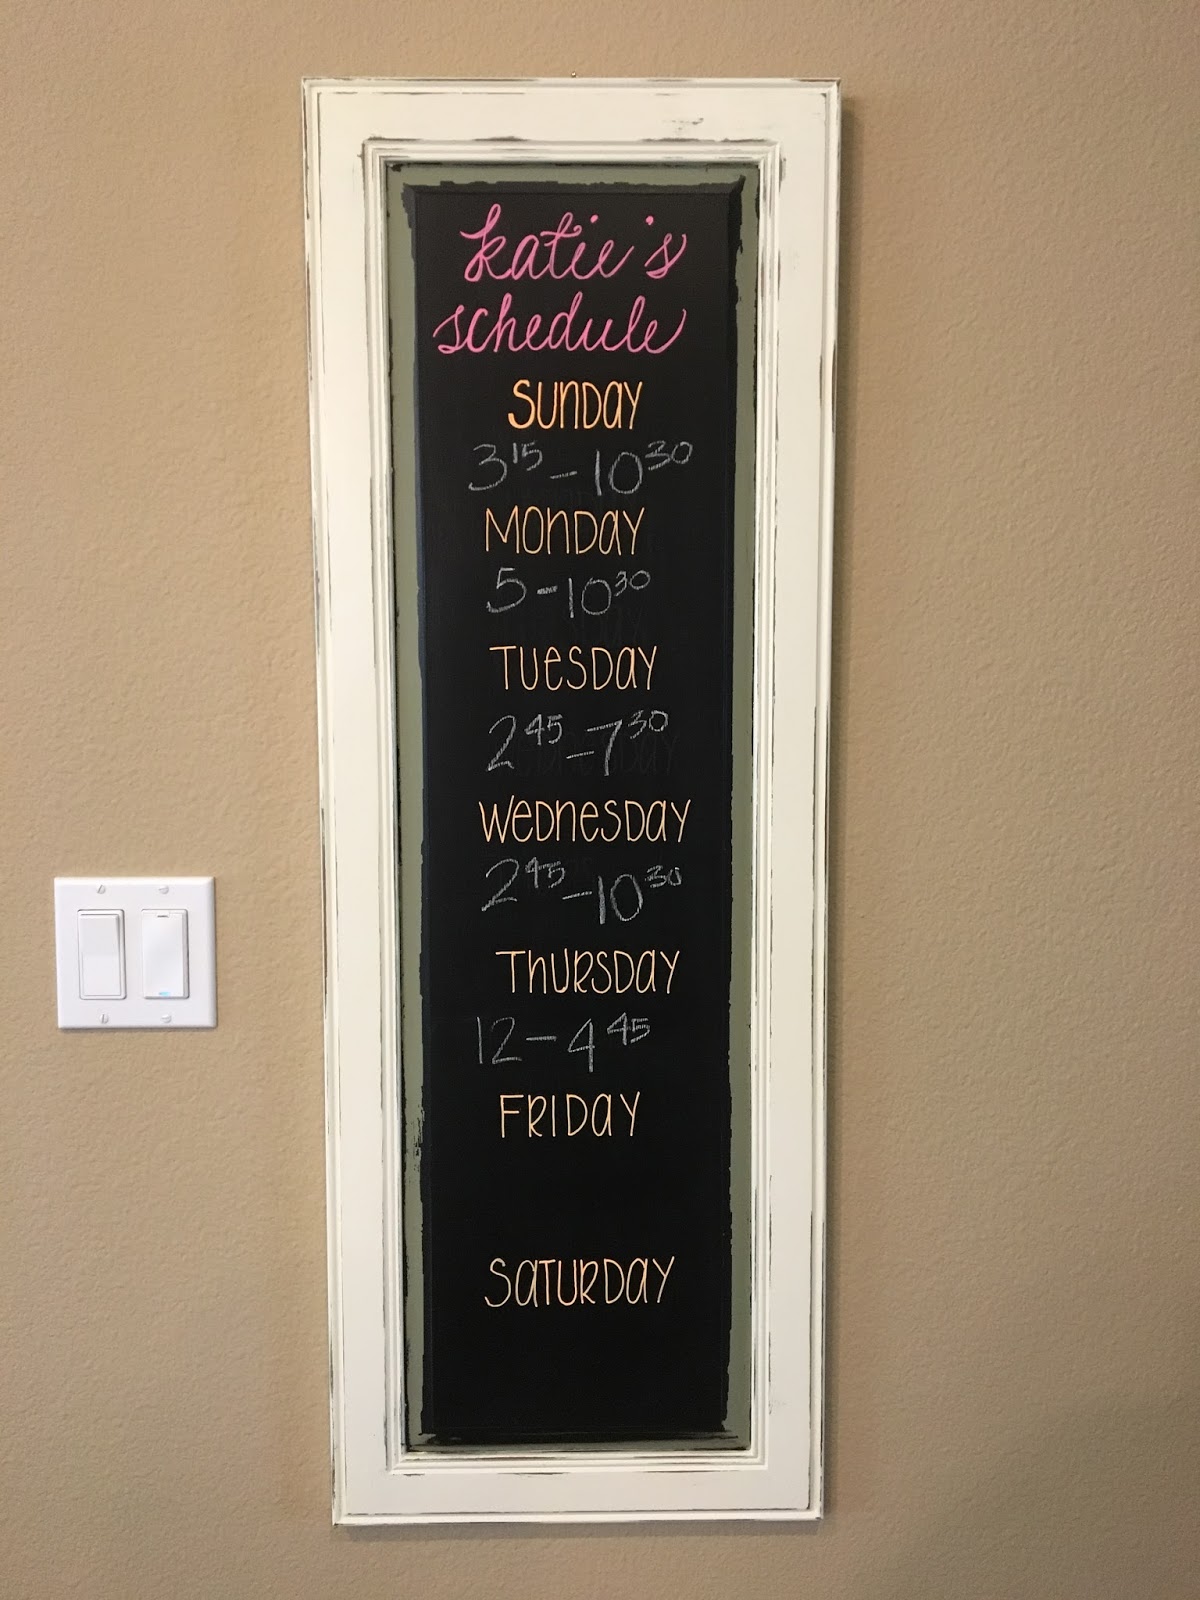 Katie's
schedule
SUNDAY
3¹⁵-10³⁰
MONDAY
5-10³⁰
TUESDAY
2⁴⁵-7³⁰
WEDNESDAY
2⁴⁵-10³⁰
THURSDAY
12-4⁴⁵
FRIDAY
SATURDAY